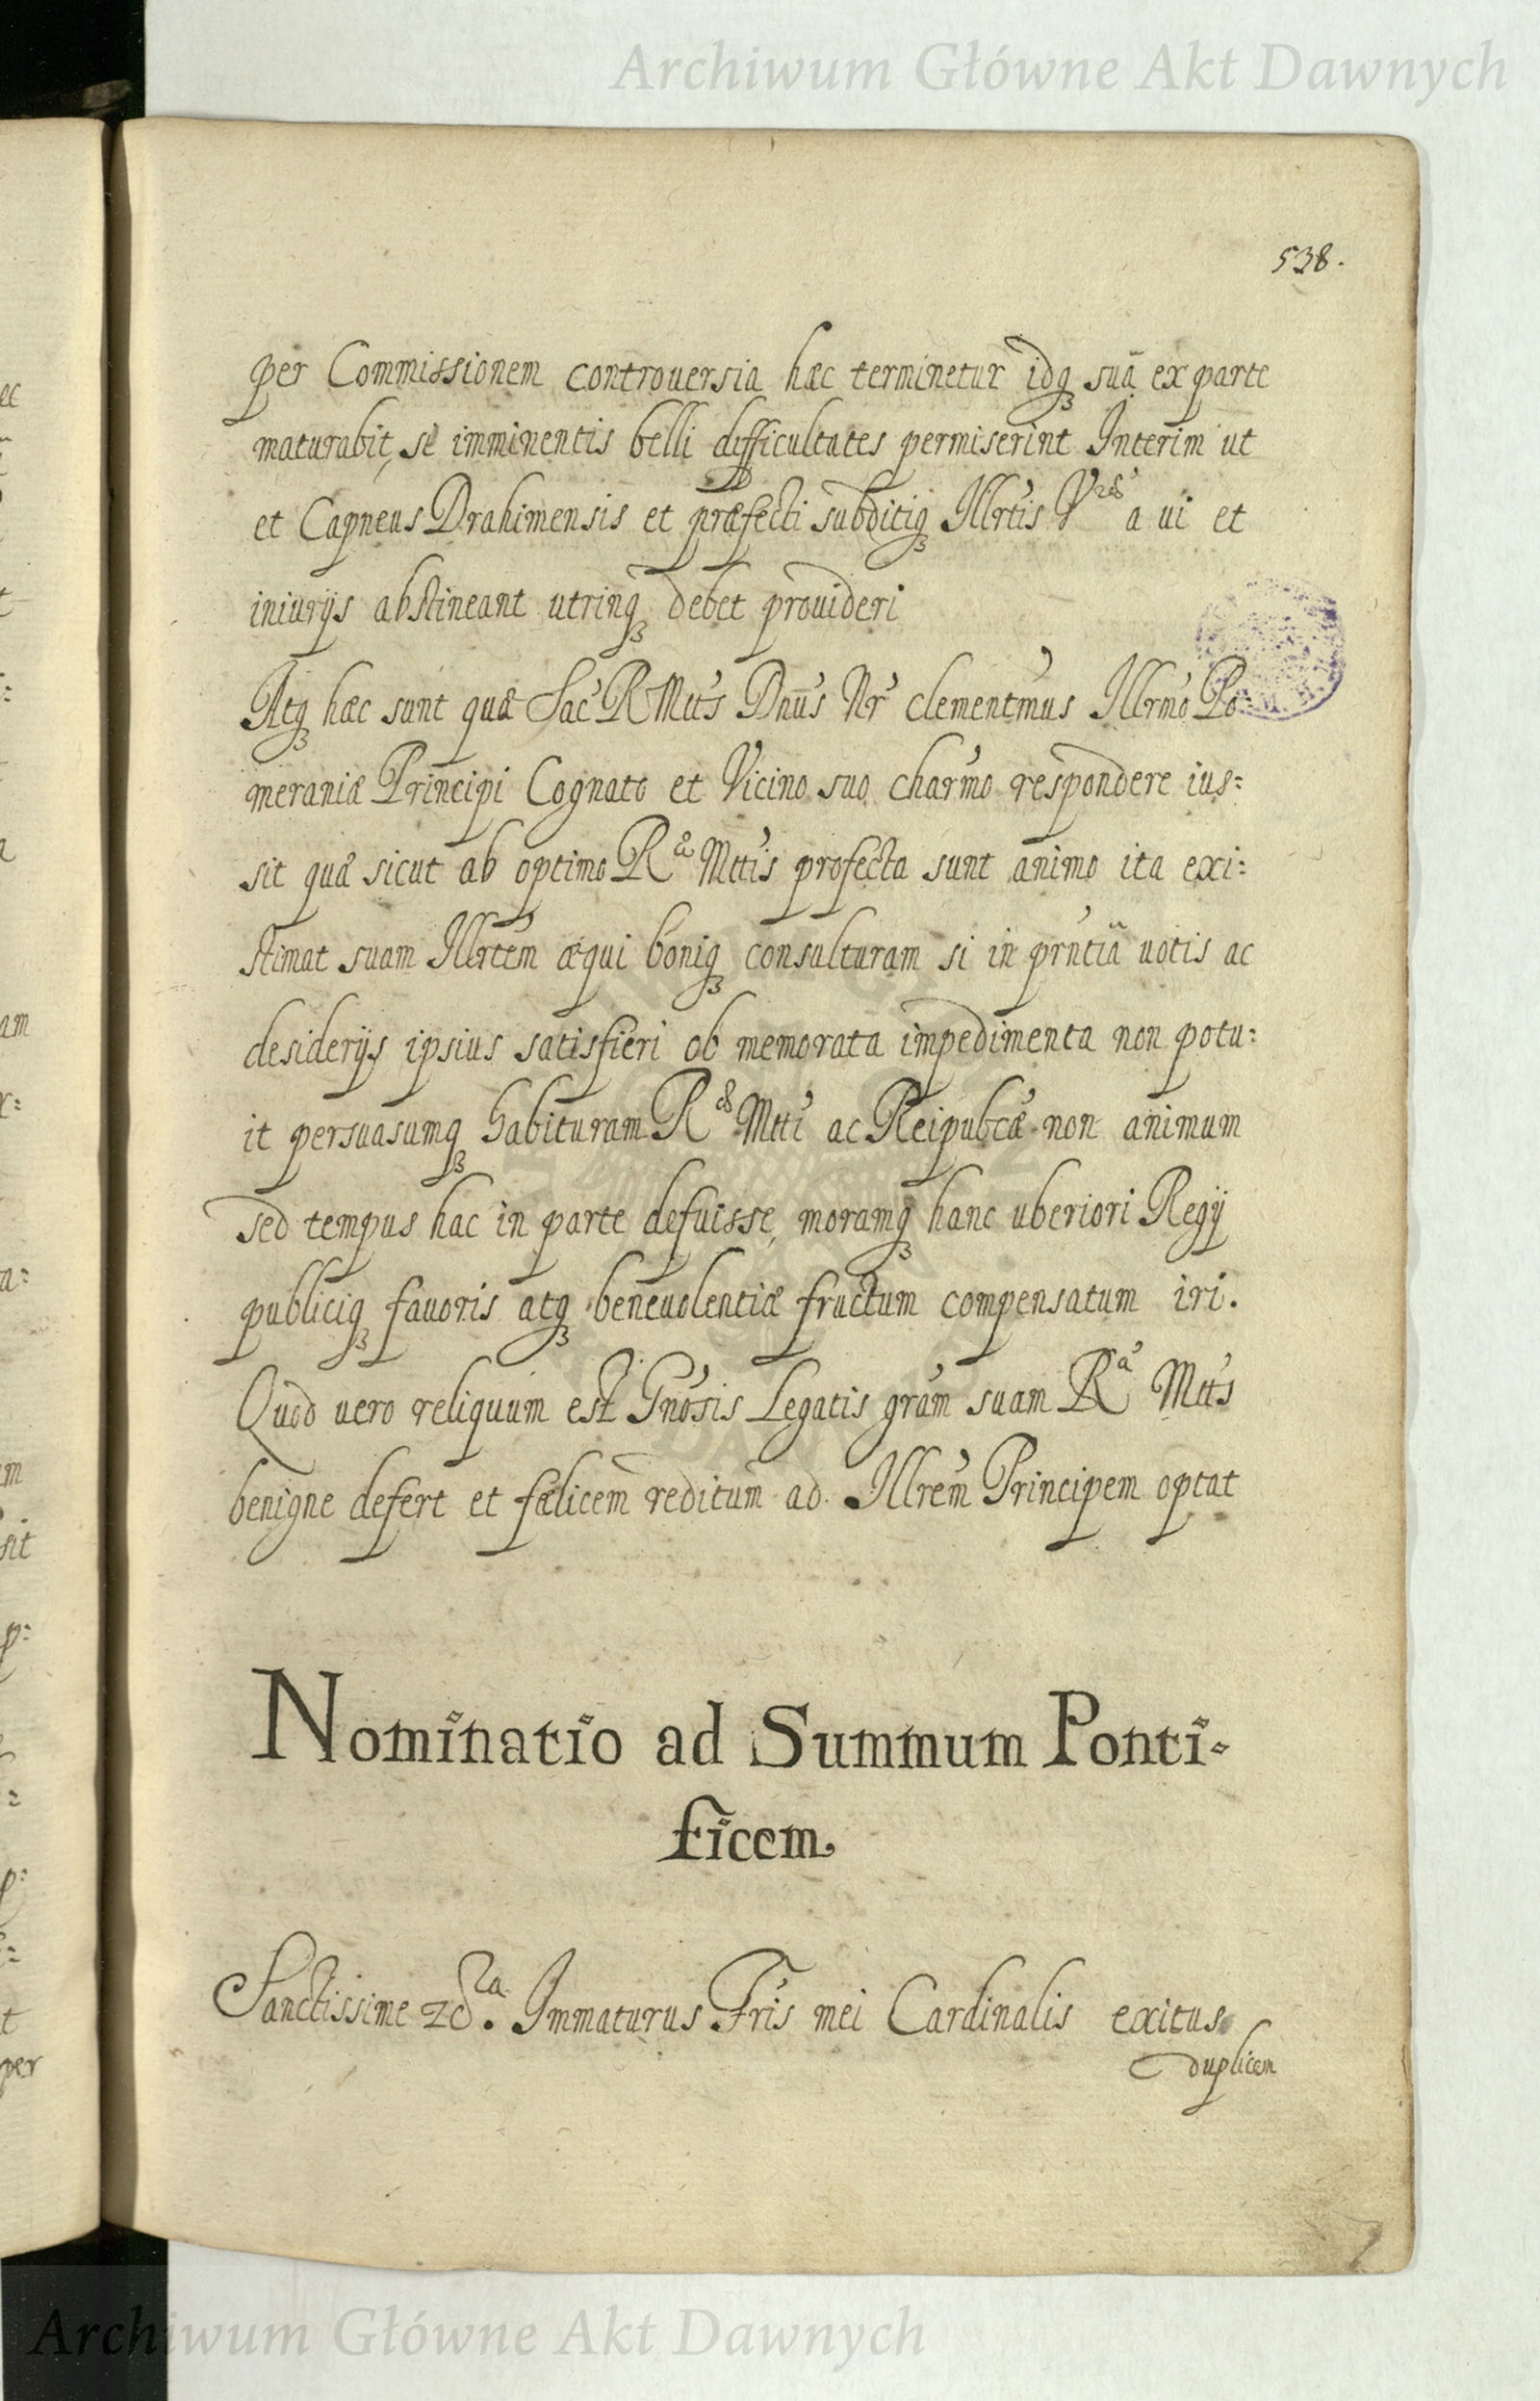 Archiwum Główne Akt Dawnych
538.
per Commissionem controuersia hæc terminetur idq₃ suã ex parte
maturabit, se imminentis belli difficultates permiserint Interim ut
et Capneus Drahimensis et præfecti subditiq₃ Illrtis V a ui et
iniurijs abstineant utrinq₃ debet prouideri
Atq₃ hæc sunt quæ Sac R Mtts Dnus Nr clementmus Illrmo Po:
meraniæ Principi Cognato et Vicino suo charmo respondere ius:
sit quæ sicut ab optimo R Mttis profecta sunt animo ita exi:
stimat suam Illrtem æqui boniq₃ consulturam si in prntiã uotis ac
desiderijs ipsius satisfieri ob memorata impedimenta non potu:
it persuasumq₃ habituram R Mtti ac Reipubcæ non animum
sed tempus hac in parte defuisse, moramq₃ hanc uberiori Regij
publiciq₃ fauoris atq₃ beneuolentiæ fructum compensatum iri.
Quod uero reliquum est Gnosis Legatis gram suam Rᵃ Mtts
benigne defert et fœlicem reditum ad Illrem Principem optat
Nominatio ad Summum Ponti-
ficem.
Sanctissime Immaturus Fris mei Cardinalis exitus
duplicem
Archiwum Główne Akt Dawnych